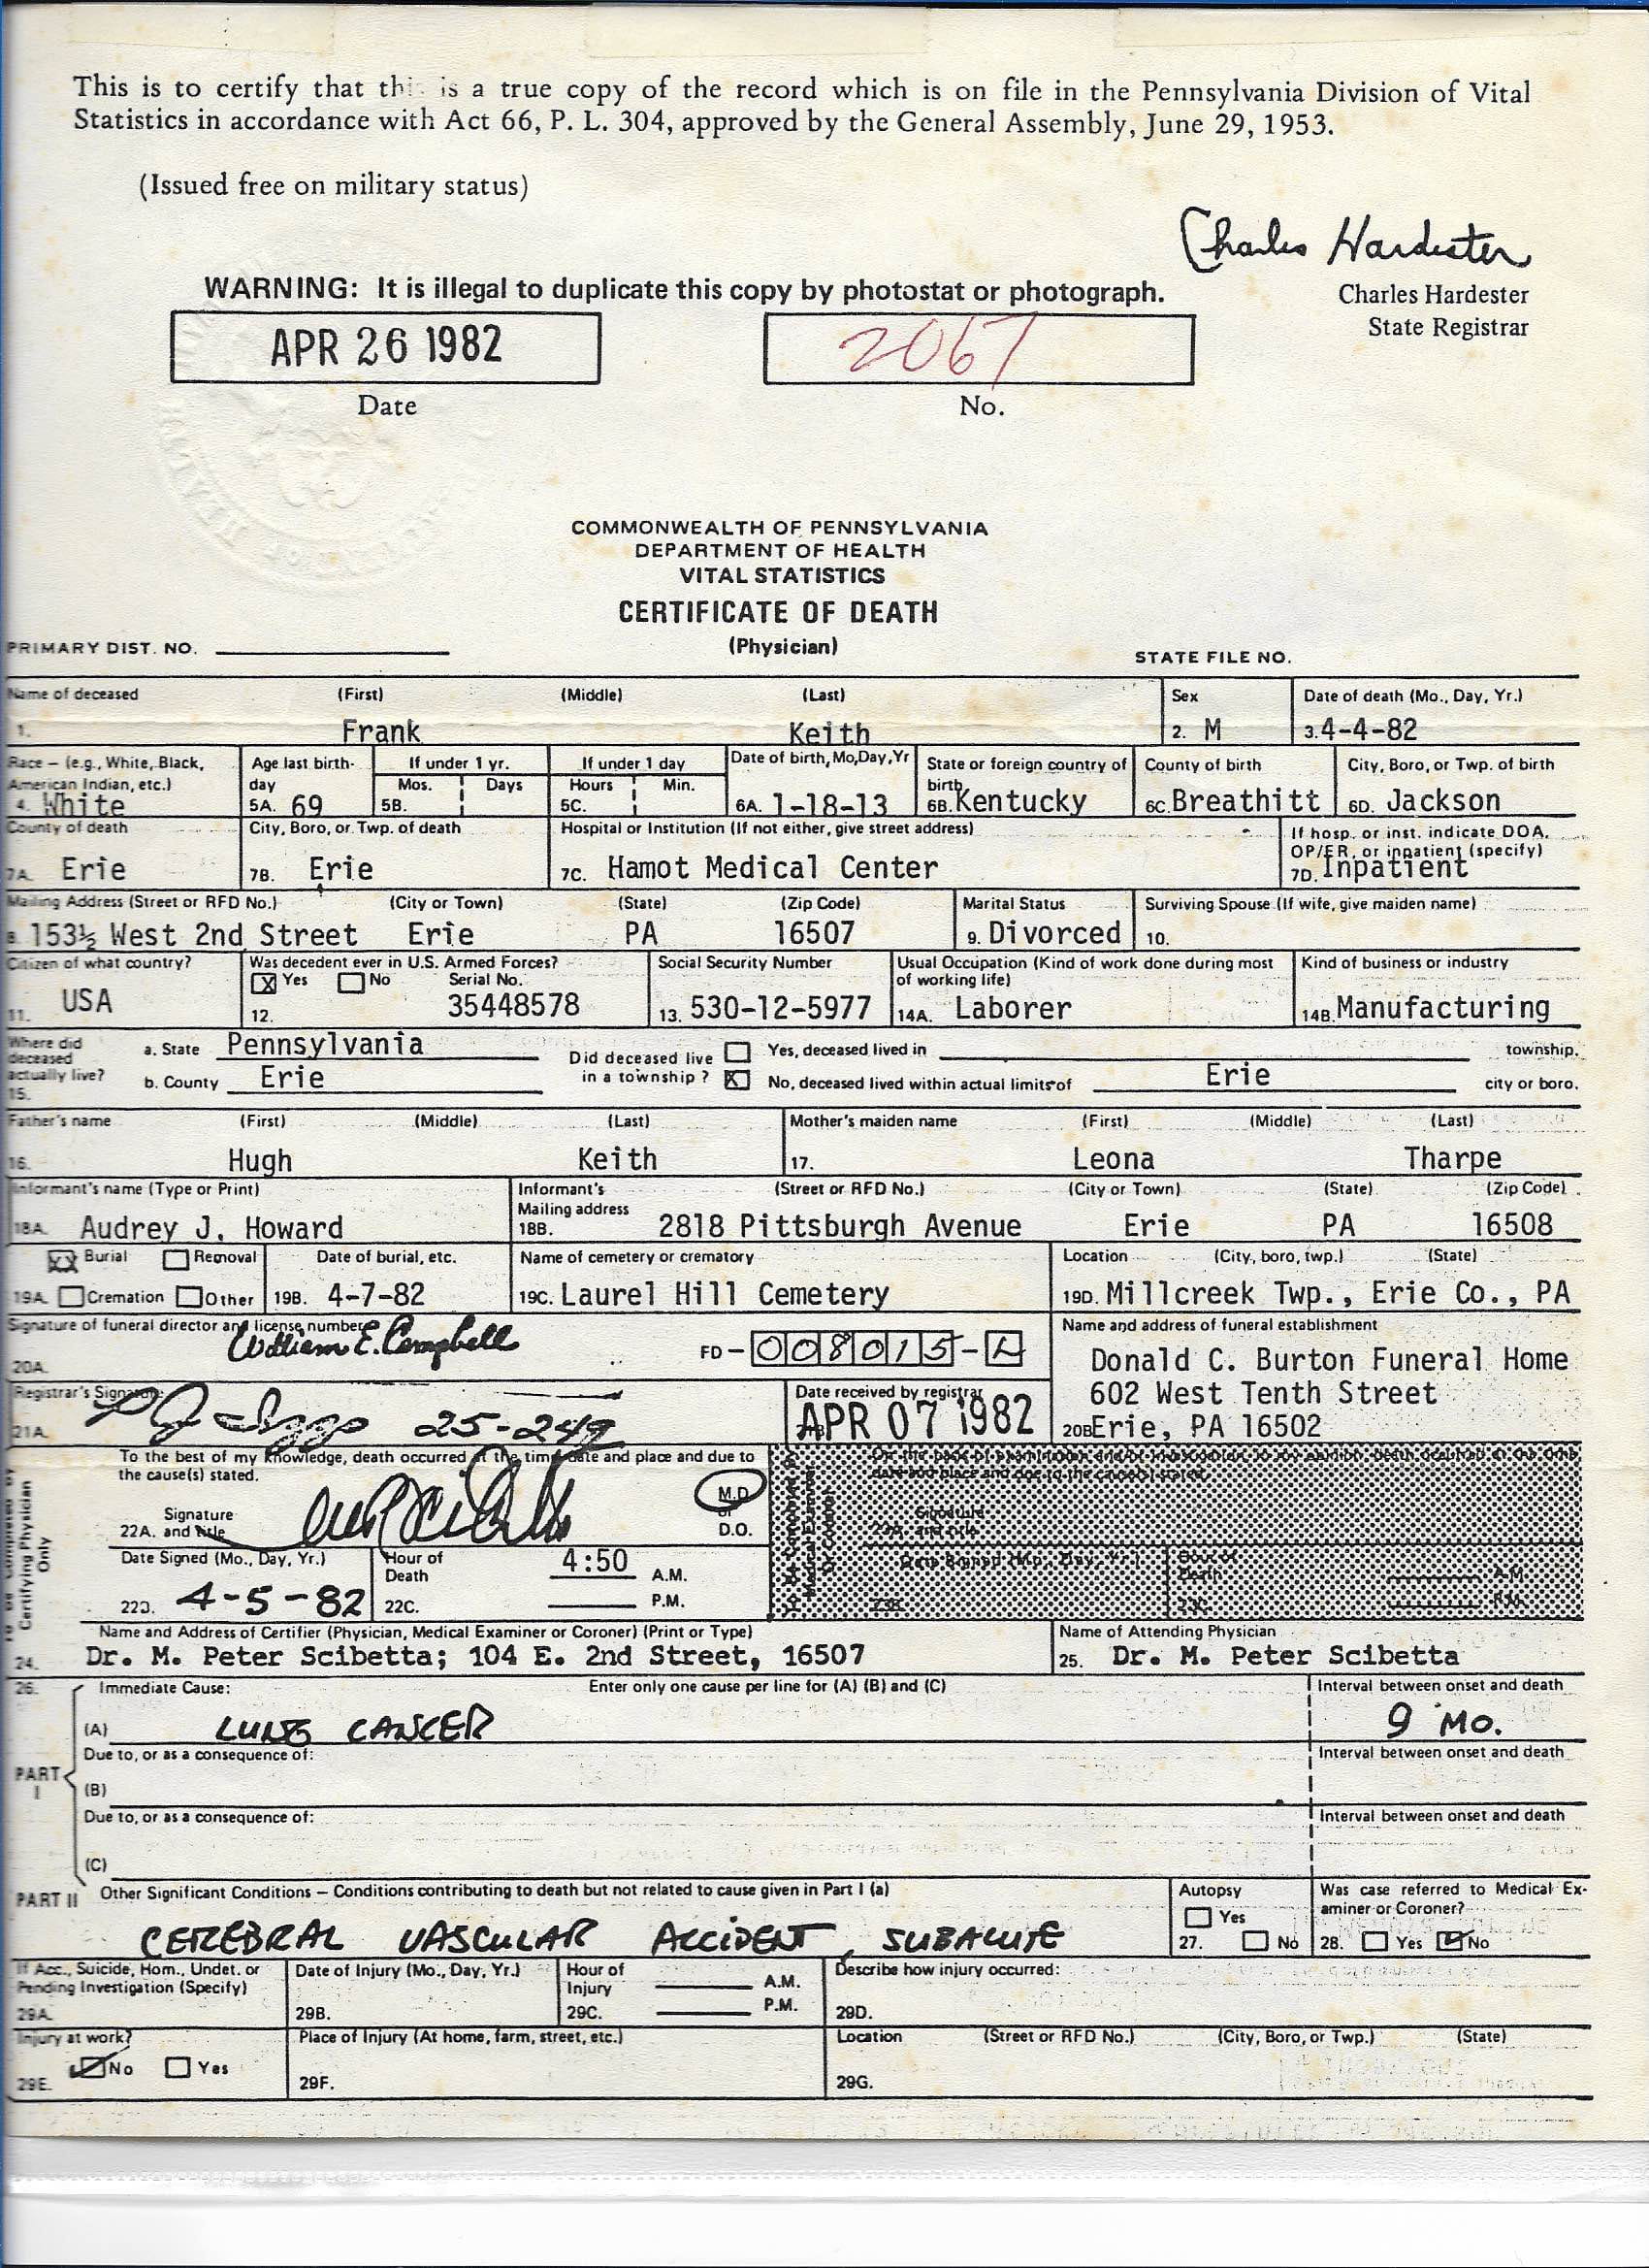 This is to certify that this is a true copy of the record which is on file in the Pennsylvania Division of Vital
Statistics in accordance with Act 66, P. L. 304, approved by the General Assembly, June 29, 1953.
(Issued free on military status)
Charles Hardester
WARNING: It is illegal to duplicate this copy by photostat or photograph.
Charles Hardester
State Registrar
APR 26 1982
2067
Date
No.
COMMONWEALTH OF PENNSYLVANIA
DEPARTMENT OF HEALTH
VITAL STATISTICS
CERTIFICATE OF DEATH
(Physician)
PRIMARY DIST. NO.
STATE FILE NO.
Name of deceased (First) (Middle) (Last) Sex Date of death (Mo., Day, Yr.)
1. Frank Keith 2. M 3. 4-4-82
Race – (e.g., White, Black, American Indian, etc.) Age last birthday If under 1 yr. If under 1 day Date of birth, Mo,Day,Yr State or foreign country of birth County of birth City, Boro, or Twp. of birth
Mos. Days Hours Min.
4. White 5A. 69 5B. 5C. 6A. 1-18-13 6B. Kentucky 6C. Breathitt 6D. Jackson
County of death City, Boro, or Twp. of death Hospital or Institution (If not either, give street address) If hosp. or inst. indicate DOA, OP/ER, or inpatient (specify)
7A. Erie 7B. Erie 7C. Hamot Medical Center 7D. Inpatient
Mailing Address (Street or RFD No.) (City or Town) (State) (Zip Code) Marital Status Surviving Spouse (If wife, give maiden name)
8. 153½ West 2nd Street Erie PA 16507 9. Divorced 10.
Citizen of what country? Was decedent ever in U.S. Armed Forces? Social Security Number Usual Occupation (Kind of work done during most of working life) Kind of business or industry
X Yes No Serial No.
11. USA 12. 35448578 13. 530-12-5977 14A. Laborer 14B. Manufacturing
Where did deceased actually live? a. State Pennsylvania Did deceased live in a township? Yes, deceased lived in township.
15. b. County Erie X No, deceased lived within actual limits of Erie city or boro.
Father's name (First) (Middle) (Last) Mother's maiden name (First) (Middle) (Last)
16. Hugh Keith 17. Leona Tharpe
Informant's name (Type or Print) Informant's Mailing address (Street or RFD No.) (City or Town) (State) (Zip Code)
18A. Audrey J. Howard 18B. 2818 Pittsburgh Avenue Erie PA 16508
Burial Removal Date of burial, etc. Name of cemetery or crematory Location (City, boro, twp.) (State)
19A. Cremation Other 19B. 4-7-82 19C. Laurel Hill Cemetery 19D. Millcreek Twp., Erie Co., PA
Signature of funeral director and license number Name and address of funeral establishment
20A. William E. Campbell FD – 008015 – L
Donald C. Burton Funeral Home
602 West Tenth Street
20B Erie, PA 16502
Registrar's Signature Date received by registrar
21A. 25-249 APR 07 1982
To the best of my knowledge, death occurred at the time, date and place and due to
the cause(s) stated.
Signature and title M.D. or D.O.
22A.
Date Signed (Mo., Day, Yr.) Hour of Death 4:50 A.M.
4-5-82 22C. P.M.
Certifying Physician Only
Name and Address of Certifier (Physician, Medical Examiner or Coroner) (Print or Type) Name of Attending Physician
24. Dr. M. Peter Scibetta; 104 E. 2nd Street, 16507 25. Dr. M. Peter Scibetta
26. Immediate Cause: Enter only one cause per line for (A) (B) and (C) Interval between onset and death
(A) LUNG CANCER 9 MO.
PART I
Due to, or as a consequence of: Interval between onset and death
(B)
Due to, or as a consequence of: Interval between onset and death
(C)
PART II Other Significant Conditions – Conditions contributing to death but not related to cause given in Part I (a) Autopsy Was case referred to Medical Examiner or Coroner?
CEREBRAL VASCULAR ACCIDENT, SUBACUTE 27. Yes No 28. Yes No
If Acc., Suicide, Hom., Undet. or Pending Investigation (Specify) Date of Injury (Mo., Day, Yr.) Hour of Injury A.M. P.M. Describe how injury occurred:
29A. 29B. 29C. 29D.
Injury at work? Place of Injury (At home, farm, street, etc.) Location (Street or RFD No.) (City, Boro, or Twp.) (State)
29E. No Yes 29F. 29G.